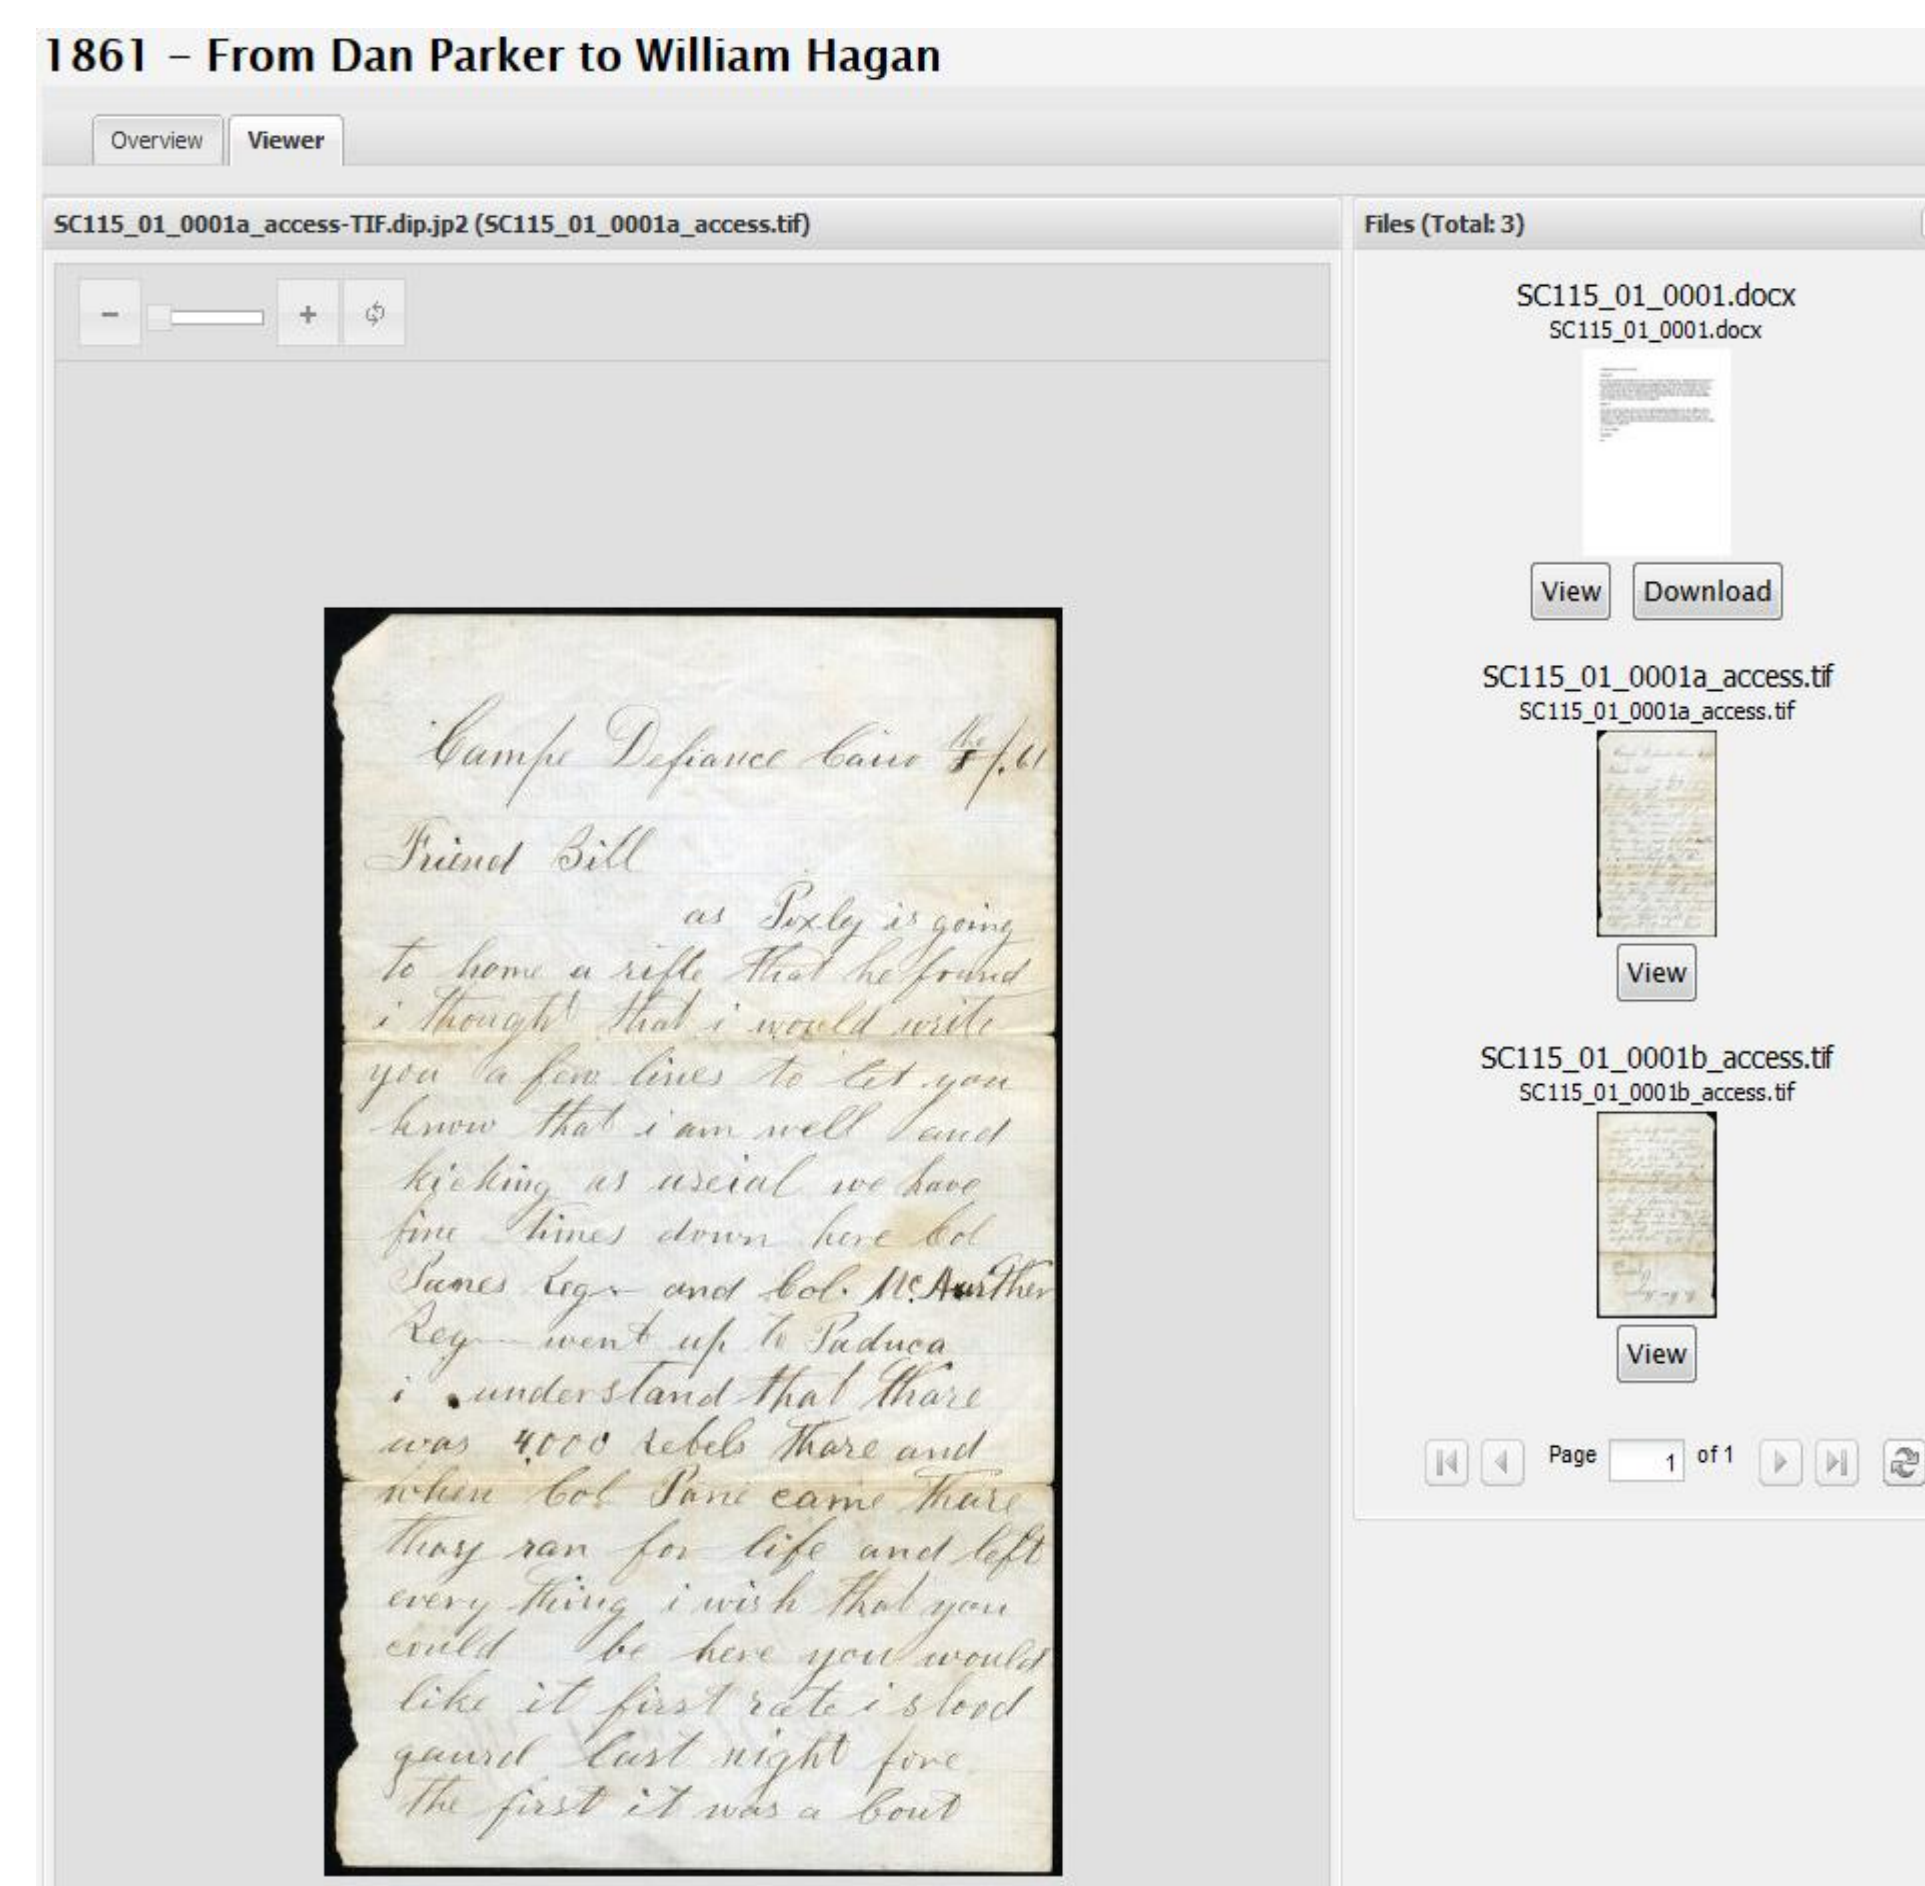 1861 – From Dan Parker to William Hagan
Overview
Viewer
SC115_01_0001a_access-TIF.dip.jp2 (SC115_01_0001a_access.tif)
Campe Defiance Cairo the /.61
Friend Bill
as Pixley is going
to home a rifle that he found
i thought that i would write
you a few lines to let you
know that i am well and
kicking as useial we have
fine times down here Col
Panes Reg and Col. McAurther
Reg went up to Paduca
i understand that thare
was 4,000 rebels thare and
when Col Pane came thare
thay ran for life and left
every thing i wish that you
could be here you would
like it first rate i stood
gaurd last night fore
the first it was a bout
Files (Total: 3)
SC115_01_0001.docx
SC115_01_0001.docx
View Download
SC115_01_0001a_access.tif
SC115_01_0001a_access.tif
View
SC115_01_0001b_access.tif
SC115_01_0001b_access.tif
View
Page 1 of 1